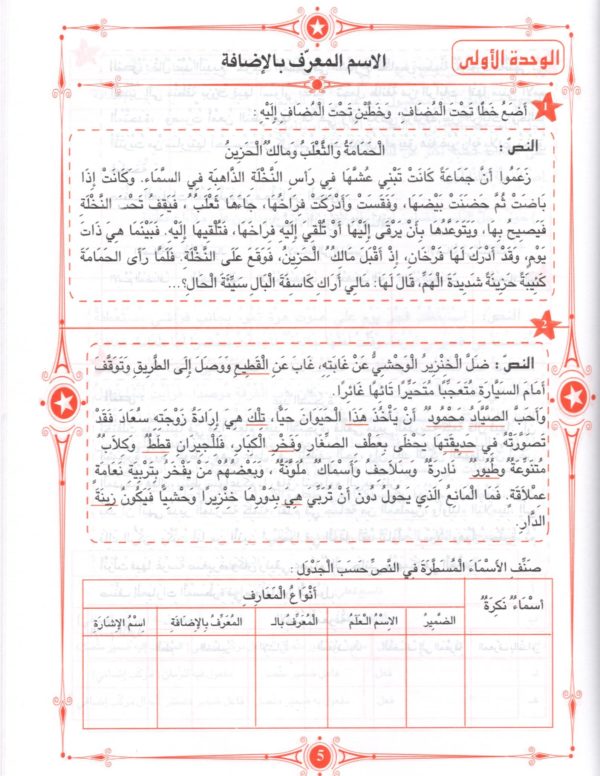 الوحدة الأولى
الاسم المعرّف بالإضافة
1 أَضَعُ خَطًّا تَحْتَ الْمُضَافِ، وَخَطَّيْنِ تَحْتَ الْمُضَافِ إِلَيْهِ:
النصّ: الْحَمَامَةُ وَالثَّعْلَبُ وَمَالِكٌ الْحَزِينُ
زَعَمُوا أَنَّ حَمَامَةً كَانَتْ تَبْنِي عُشَّهَا فِي رَأْسِ النَّخْلَةِ الذَّاهِبَةِ فِي السَّمَاءِ. وَكَانَتْ إِذَا
بَاضَتْ ثُمَّ حَضَنَتْ بَيْضَهَا، وَفَقَسَتْ وَأَدْرَكَتْ فِرَاخُهَا، جَاءَهَا ثَعْلَبٌ، فَيَقِفُ تَحْتَ النَّخْلَةِ
فَيَصِيحُ بِهَا، وَيَتَوَعَّدُهَا بِأَنْ يَرْقَى إِلَيْهَا أَوْ تُلْقِيَ إِلَيْهِ فِرَاخَهَا، فَتُلْقِيهَا إِلَيْهِ. فَبَيْنَمَا هِيَ ذَاتَ
يَوْمٍ، وَقَدْ أَدْرَكَ لَهَا فَرْخَانِ، إِذْ أَقْبَلَ مَالِكٌ الْحَزِينُ، فَوَقَعَ عَلَى النَّخْلَةِ. فَلَمَّا رَأَى الْحَمَامَةَ
كَئِيبَةً حَزِينَةً شَدِيدَةَ الْهَمِّ، قَالَ لَهَا: مَالِي أَرَاكِ كَاسِفَةَ الْبَالِ سَيِّئَةَ الْحَالِ؟...
2
النصّ: ضَلَّ الْخِنْزِيرُ الْوَحْشِيُّ عَنْ غَابَتِهِ، غَابَ عَنِ الْقَطِيعِ وَوَصَلَ إِلَى الطَّرِيقِ وَتَوَقَّفَ
أَمَامَ السَّيَّارَةِ مُتَعَجِّبًا مُتَحَيِّرًا تَائِهًا غَائِرًا.
وَأَحَبَّ الصَّيَّادُ مَحْمُودٌ أَنْ يَأْخُذَ هَذَا الْحَيَوَانَ حَيًّا، تِلْكَ هِيَ إِرَادَةُ زَوْجَتِهِ سُعَادَ فَقَدْ
تَصَوَّرَتْهُ فِي حَدِيقَتِهَا يَحْظَى بِعَطْفِ الصِّغَارِ وَفَخْرِ الْكِبَارِ، فَلِلْجِيرَانِ قِطَطٌ وَكِلَابٌ
مُتَنَوِّعَةٌ وَطُيُورٌ نَادِرَةٌ وَسَلَاحِفُ وَأَسْمَاكٌ مُلَوَّنَةٌ، وَبَعْضُهُمْ مَنْ يَفْخَرُ بِتَرْبِيَةِ نَعَامَةٍ
عِمْلَاقَةٍ. فَمَا الْمَانِعُ الَّذِي يَحُولُ دُونَ أَنْ تُرَبِّيَ هِيَ بِدَوْرِهَا خِنْزِيرًا وَحْشِيًّا فَيَكُونُ زِينَةَ
الدَّارِ.
صَنِّفِ الأَسْمَاءَ الْمُسَطَّرَةَ فِي النَّصِّ حَسَبَ الْجَدْوَلِ:
أَسْمَاءٌ نَكِرَةٌ
أَنْوَاعُ الْمَعَارِفِ
الضَّمِيرُ
الاِسْمُ الْعَلَمُ
الْمُعَرَّفُ بِالـ
الْمُعَرَّفُ بِالإِضَافَةِ
اِسْمُ الإِشَارَةِ
5